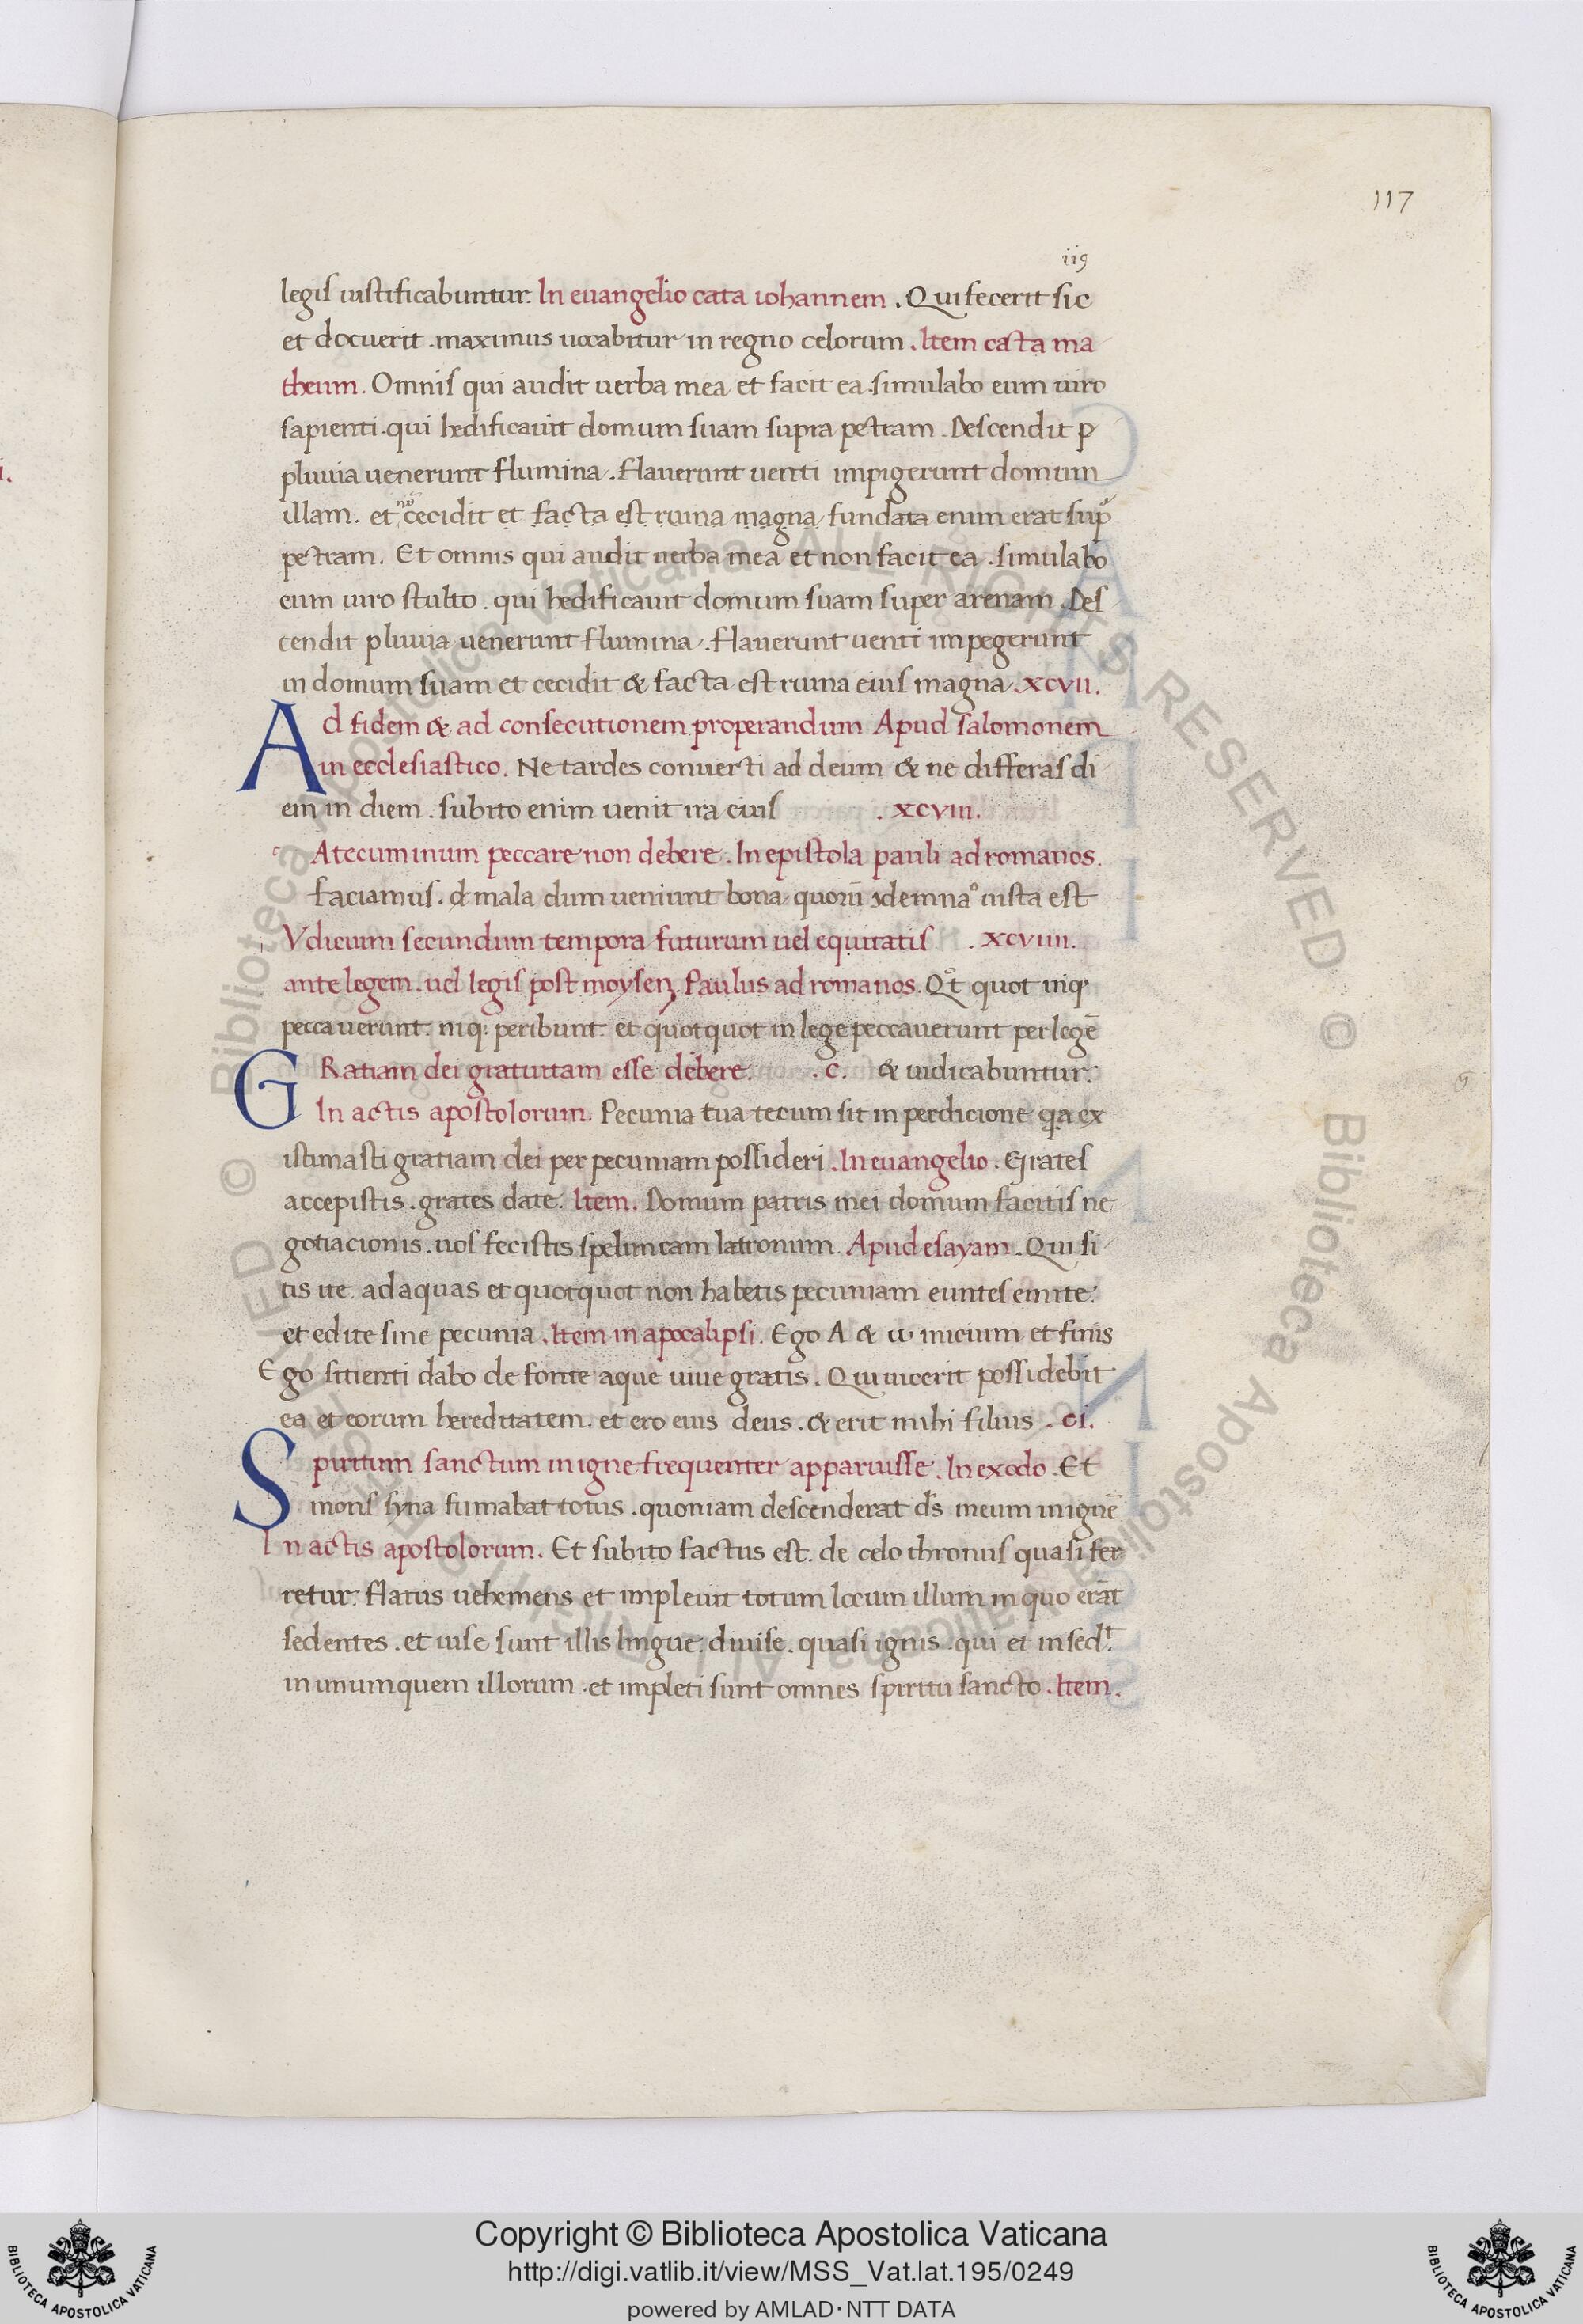 117
119
legis iustificabuntur. In euangelio cata iohannem . Qui fecerit sic
et docuerit . maximus uocabitur in regno celorum . Item casta ma
theum . Omnis qui audit uerba mea et facit ea . simulabo eum uiro
sapienti . qui hedificauit domum suam supra petram . Descendit p
pluuia uenerunt flumina . flauerunt uenti impigerunt domum
illam . et nō cecidit et facta est ruina magna fundata enim erat sup
petram . Et omnis qui audit uerba mea et non facit ea . simulabo
eum uiro stulto . qui hedificauit domum suam super arenam . Des
cendit pluuia uenerunt flumina . flauerunt uenti impegerunt
in domum suam et cecidit & facta est ruina eius magna . XCVII.
Ad fidem & ad consecutionem properandum Apud salomonem
in ecclesiastico . Ne tardes conuerti ad deum & ne differas di
em in diem . subito enim uenit ira eius . XCVIII.
c Atecuminum peccare non debere . In epistola pauli ad romanos.
faciamus . mala dum ueniunt bona quorū ɔdemnaº iusta est
i Vdicium secundum tempora futurum uel equitatis . XCVIIII.
ante legem . uel legis post moysen . Paulus ad romanos . quot inq
peccauerunt . inq; peribunt . et quotquot in lege peccauerunt per legē
GRatiam dei gratuitam esse debere . . C. & iudicabuntur.
In actis apostolorum . Pecunia tua tecum sit in perdicione q.a ex
istimasti gratiam dei per pecuniam possideri . In euangelio . Grates
accepistis . grates date . Item . Domum patris mei domum facitis ne
gotiacionis . uos fecistis speluncam latronum . Apud esayam . Qui si
tis ite . ad aquas et quotquot non habetis pecuniam euntes emite.
et edite sine pecunia . Item in apocalipsi . Ego A & ω inicium et finis
Ego sitienti dabo de fonte aque uiue gratis . Qui uicerit possidebit
ea et eorum hereditatem . et ero eius deus . & erit mihi filius . CI.
Spiritum sanctum in igne frequenter apparuisse . In exodo . Et
mons syna fumabat totus . quoniam descenderat ds meum in ignē
In actis apostolorum . Et subito factus est . de celo thronus quasi fer
retur . flatus uehemens et impleuit totum locum illum in quo erāt
sedentes . et uise sunt illis lingue . diuise . quasi ignis . qui et insedt.
in unumquem illorum . et impleti sunt omnes spiritu sancto . Item .
Copyright © Biblioteca Apostolica Vaticana
http://digi.vatlib.it/view/MSS_Vat.lat.195/0249
powered by AMLAD·NTT DATA
BIBLIOTECA APOSTOLICA VATICANA
BIBLIOTECA APOSTOLICA VATICANA